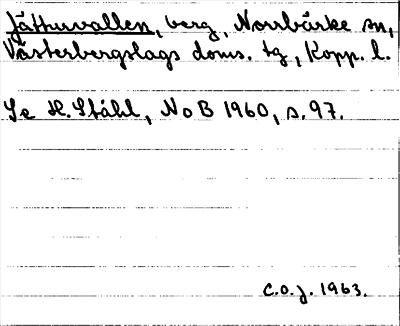 Jätturvallen, berg, Norrbärke sn,
Västerbergslags doms. tg, Kopp. l.
Se H. Ståhl, NoB 1960, s. 97.
C.O.J. 1963.